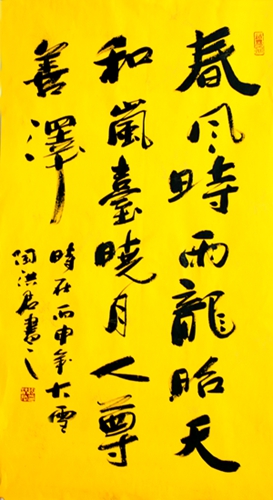 春风時雨龍眙天
和嵐臺曉月人尊
善澤
時在丙申年大雪
陶洪君書之